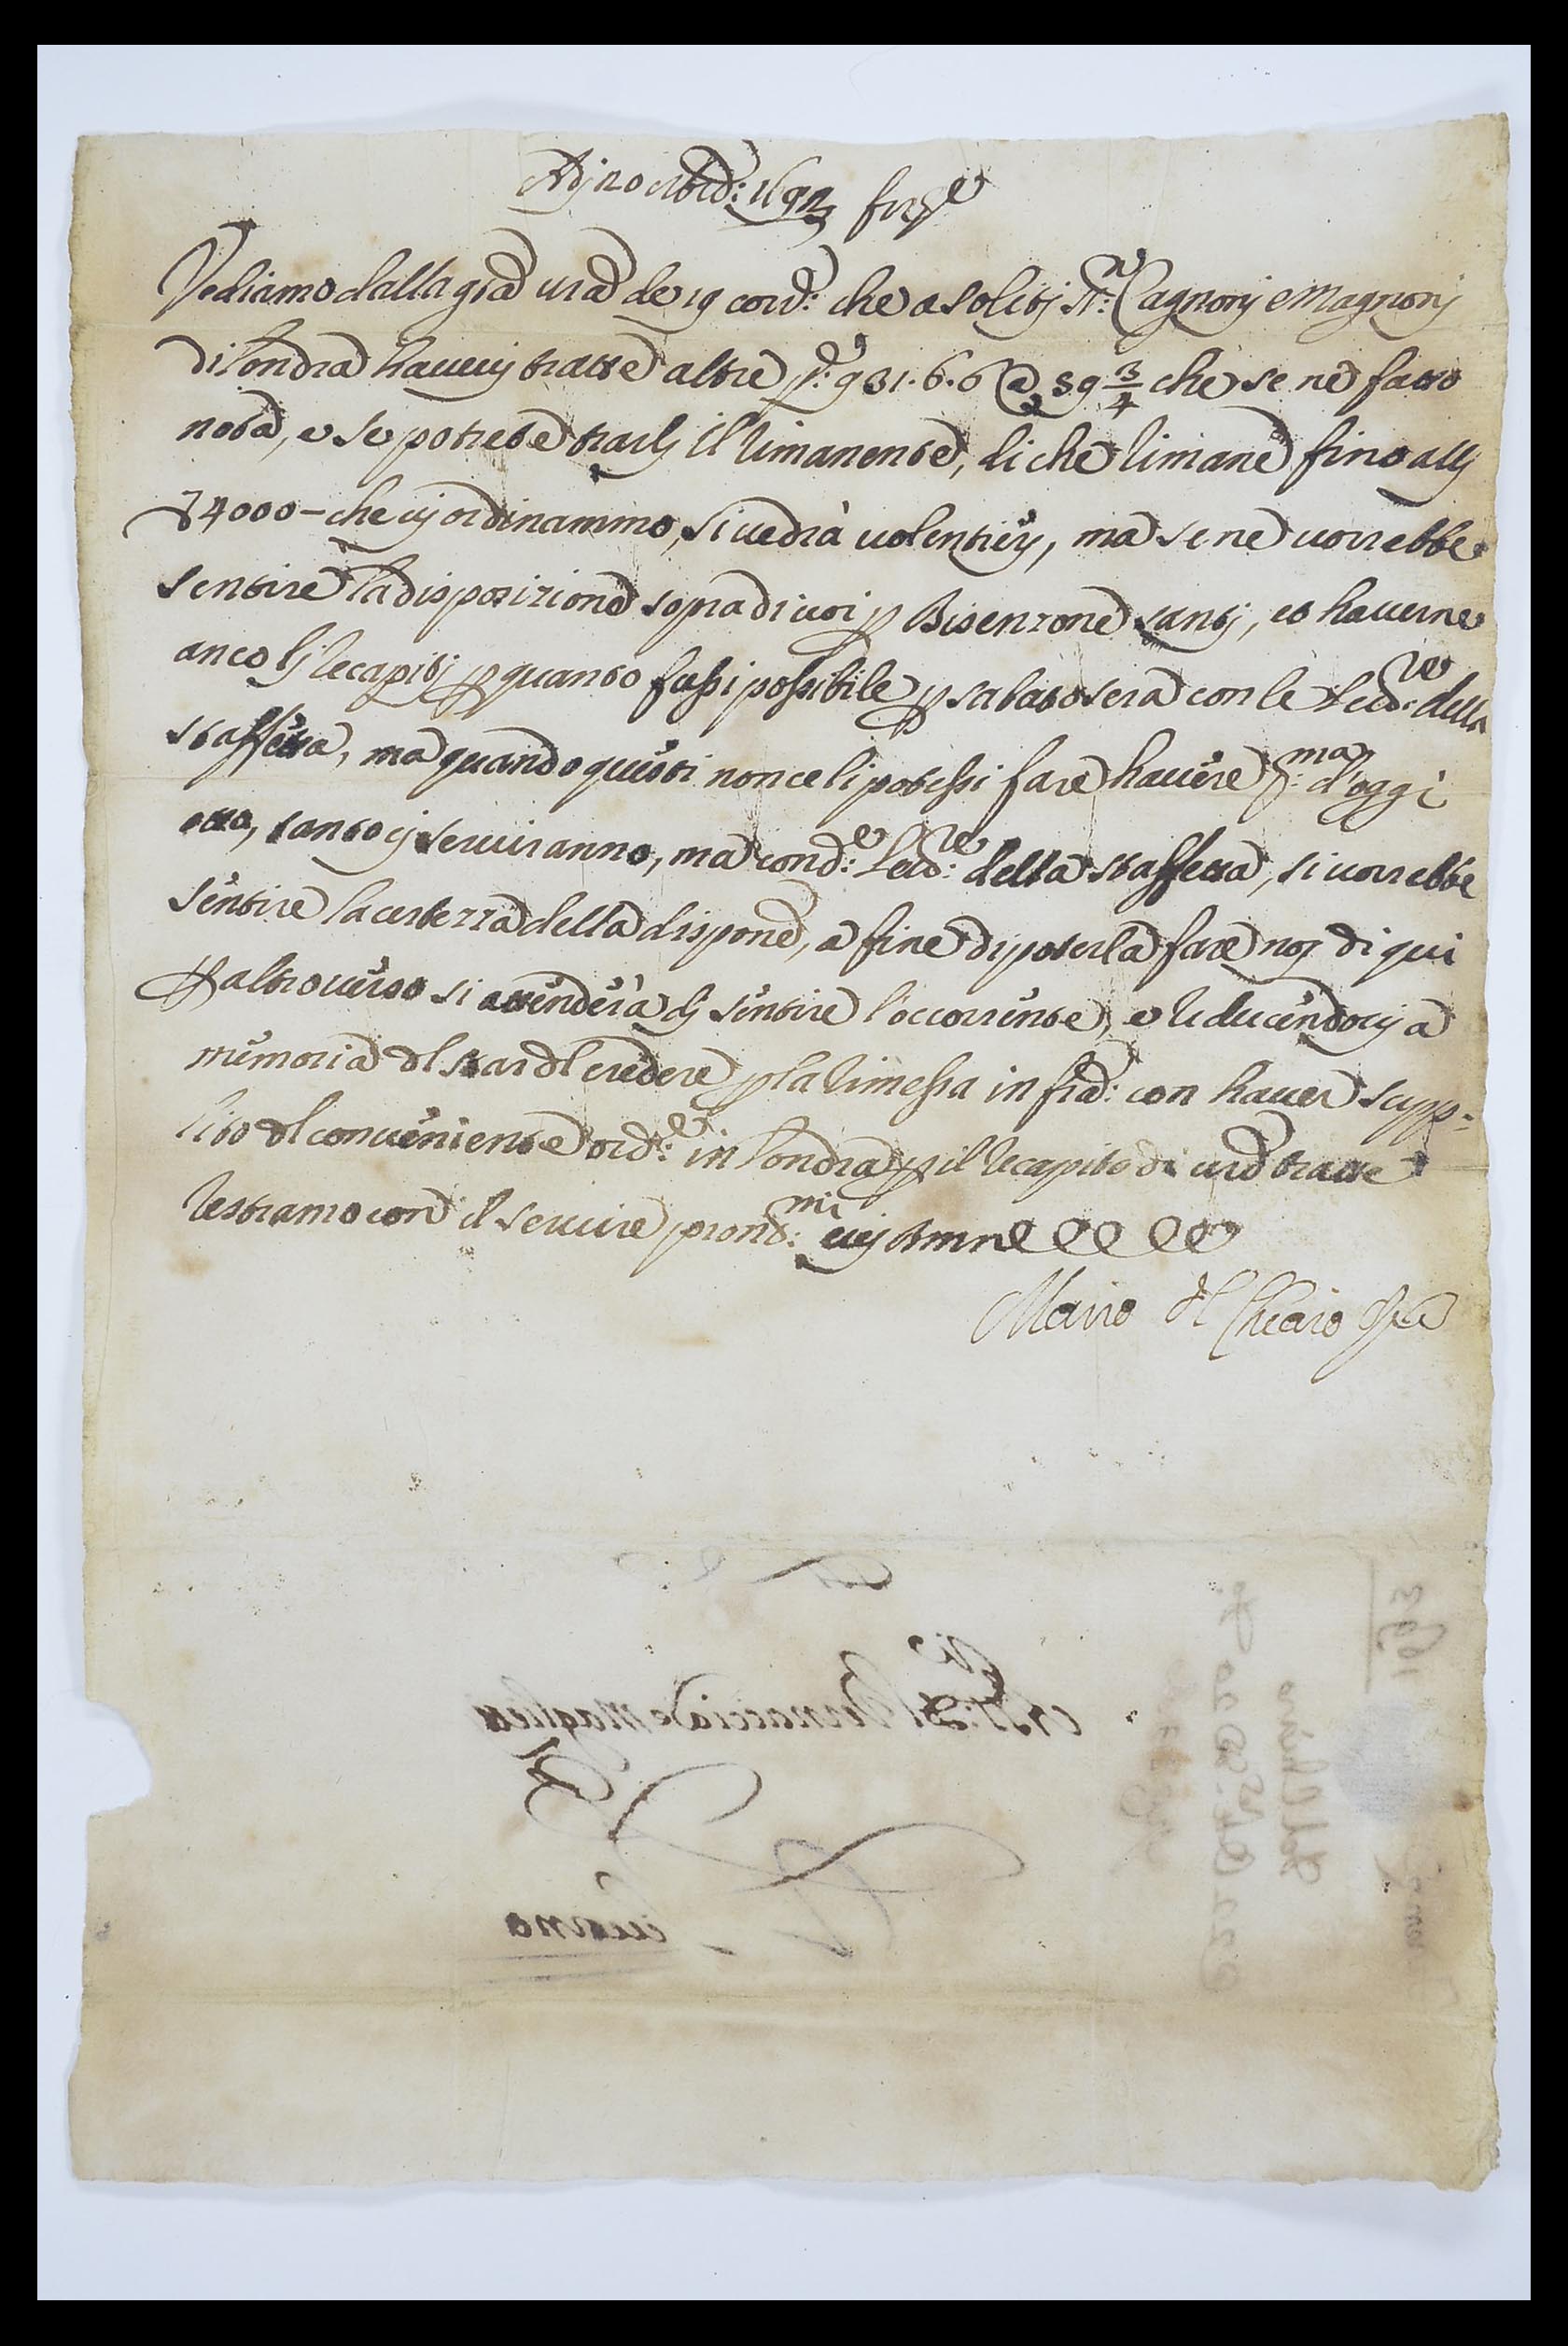 Adj 20 8bre: 1693 firze
Vediamo dalla gra vra de 19 corr:te che a solitj SS:ri Cagnonj e Magnonj
di Londra havevj tratte altre p:e 931.6.6 @ 59 3/4 che se ne fatto
nota, e se potrete trarlj il rimanente, di che rimane fino allj
∇4000 - che vj ordinammo, si vedrà volentierj, ma se ne vorrebbe
sentire la disposizione sopra di voi p Bisenzone tantj, et haverne
anco lj recapitj p quanto fussi possibile p sabato sera con le lett:re della
staffetta, ma quando questi non celi potessi fare havere p:ma d'oggi
otto, tanto cj serviranno, ma con d:e lett:re della staffetta, si vorrebbe
sentire la certezza della dispone, a fine di poterla fare noj di qui
p altro verso si attenderà dj sentire l'occorrente, e riducendocij a
memoria dl star dl credere p la rimessa in fra: con haver supp=
lito dl conveniente ord:e in Londra p il recapito di vre tratte
restiamo con il servire pront:mi vij
Mario dl Chiaro
1693
Vernaccia e Maglietti
Livorno